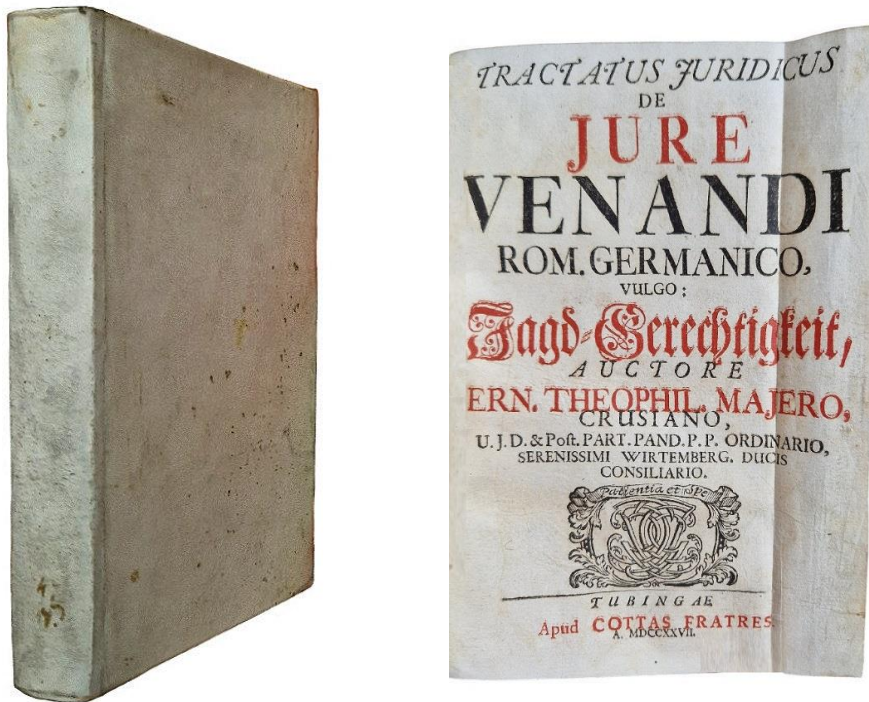 TRACTATUS JURIDICUS
DE
JURE
VENANDI
ROM. GERMANICO,
VULGO:
Jagd-Gerechtigkeit,
AUCTORE
ERN. THEOPHIL. MAJERO,
CRUSIANO,
U. J. D. & Post. PART. PAND. P. P. ORDINARIO,
SERENISSIMI WIRTEMBERG. DUCIS
CONSILIARIO.
Patientia et Spe
TUBINGAE
Apud COTTAS FRATRES.
A. MDCCXXVII.